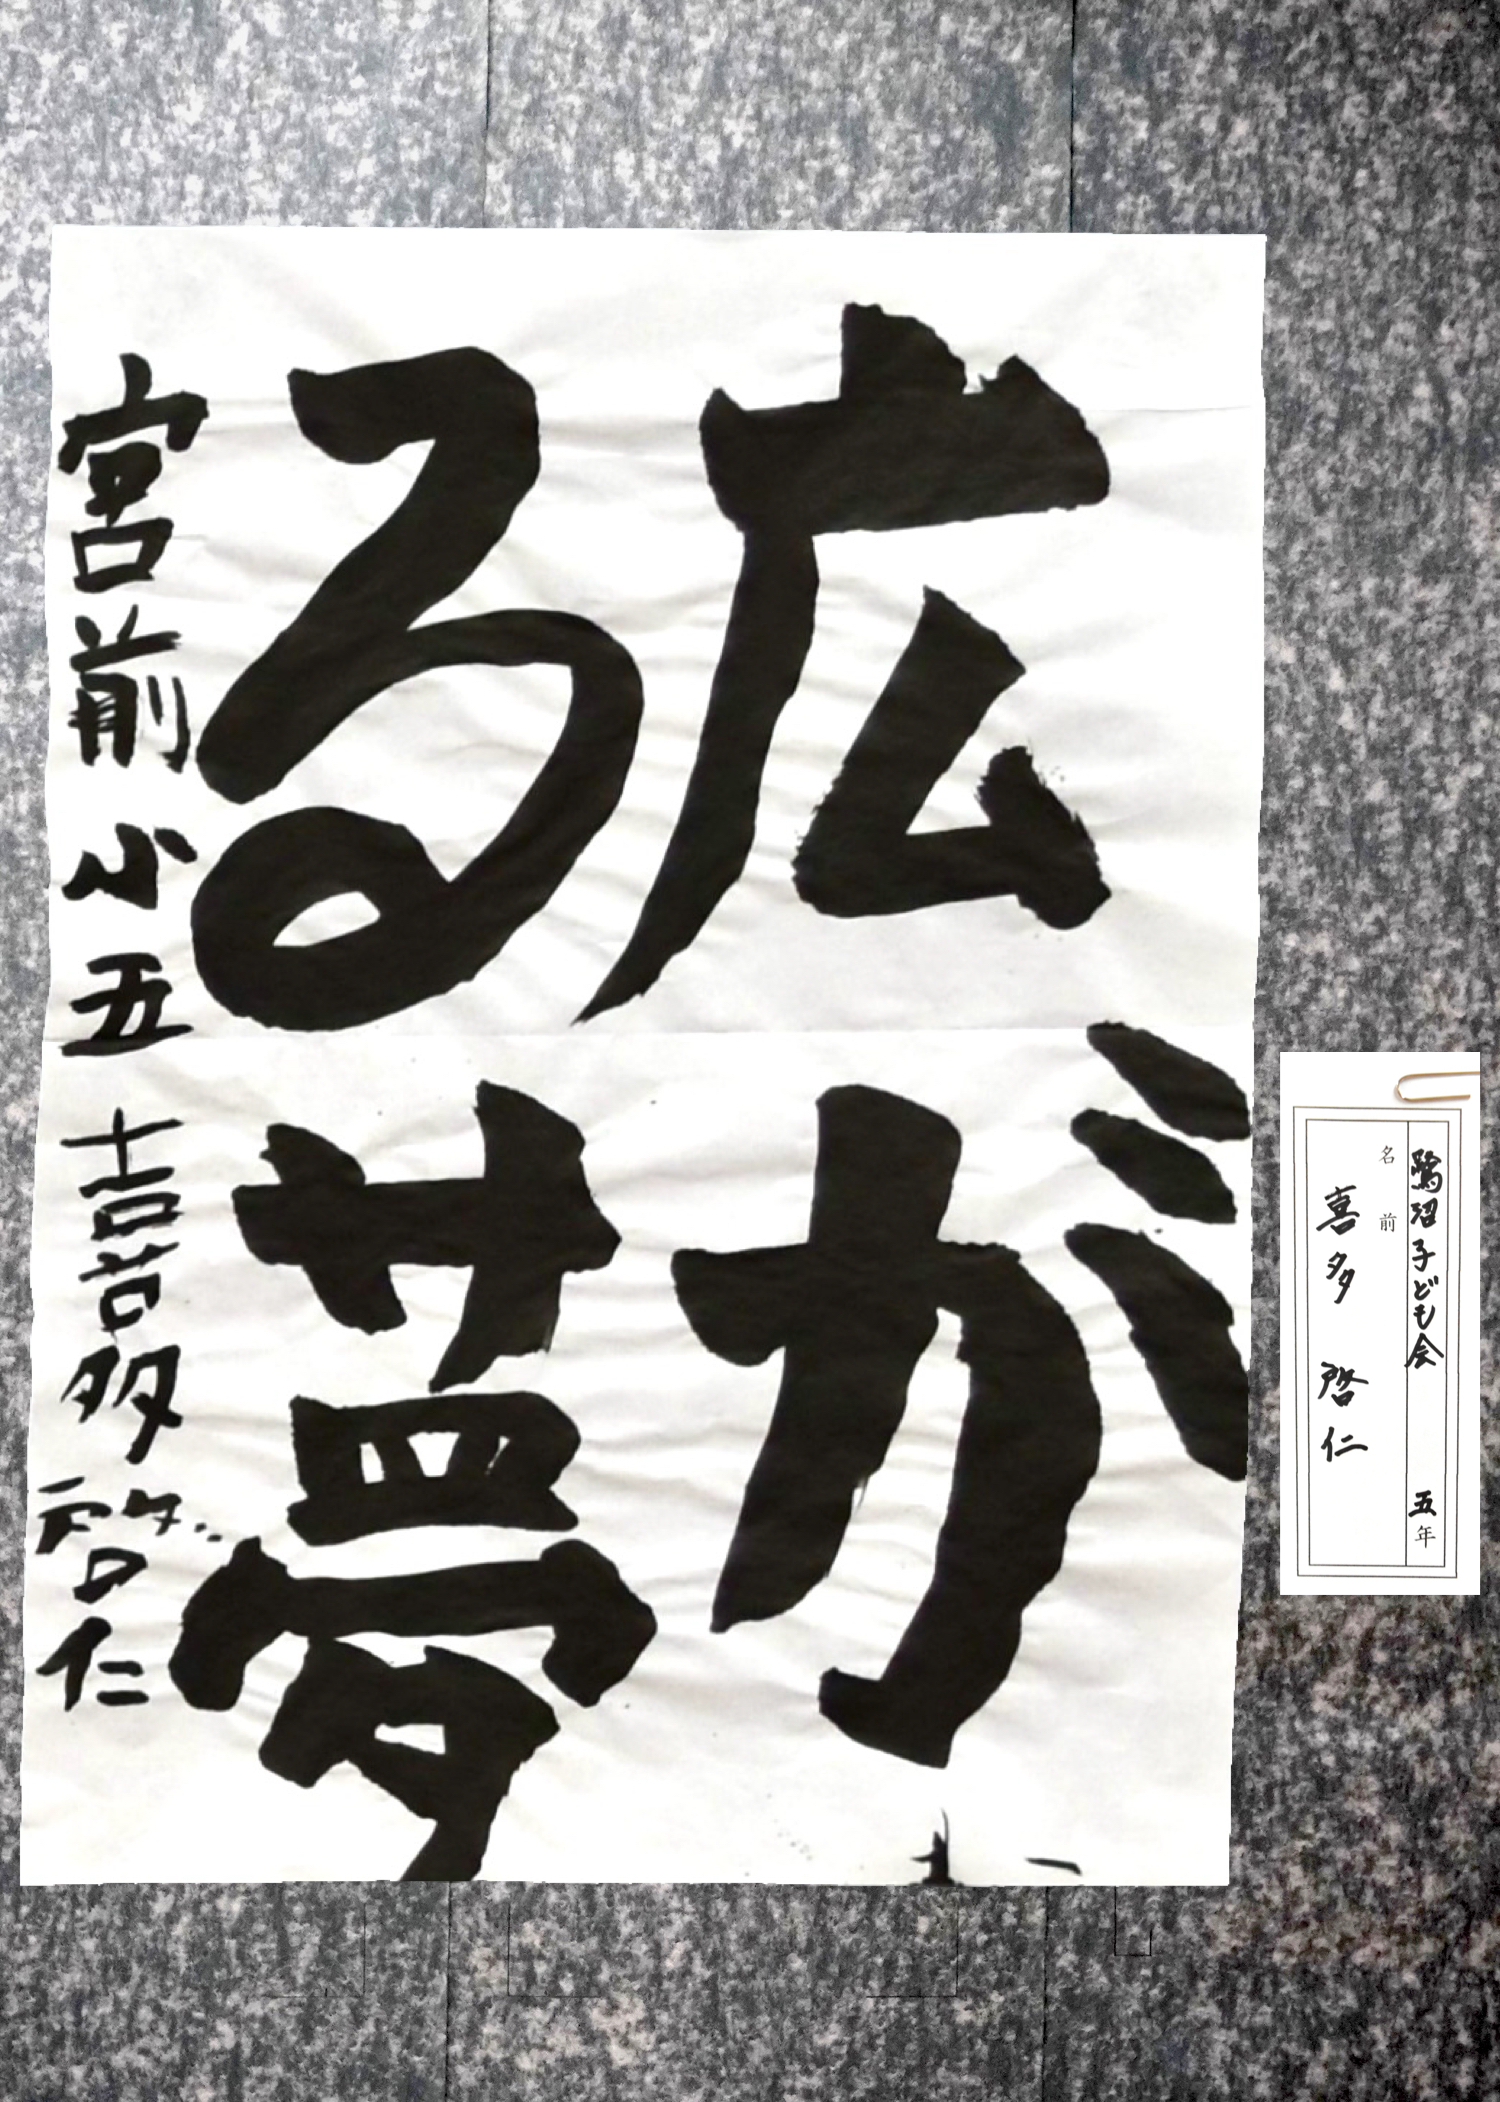 広が
る夢
宮前小五 喜多啓仁
鷺沼子ども会 五年
名前
喜多 啓仁